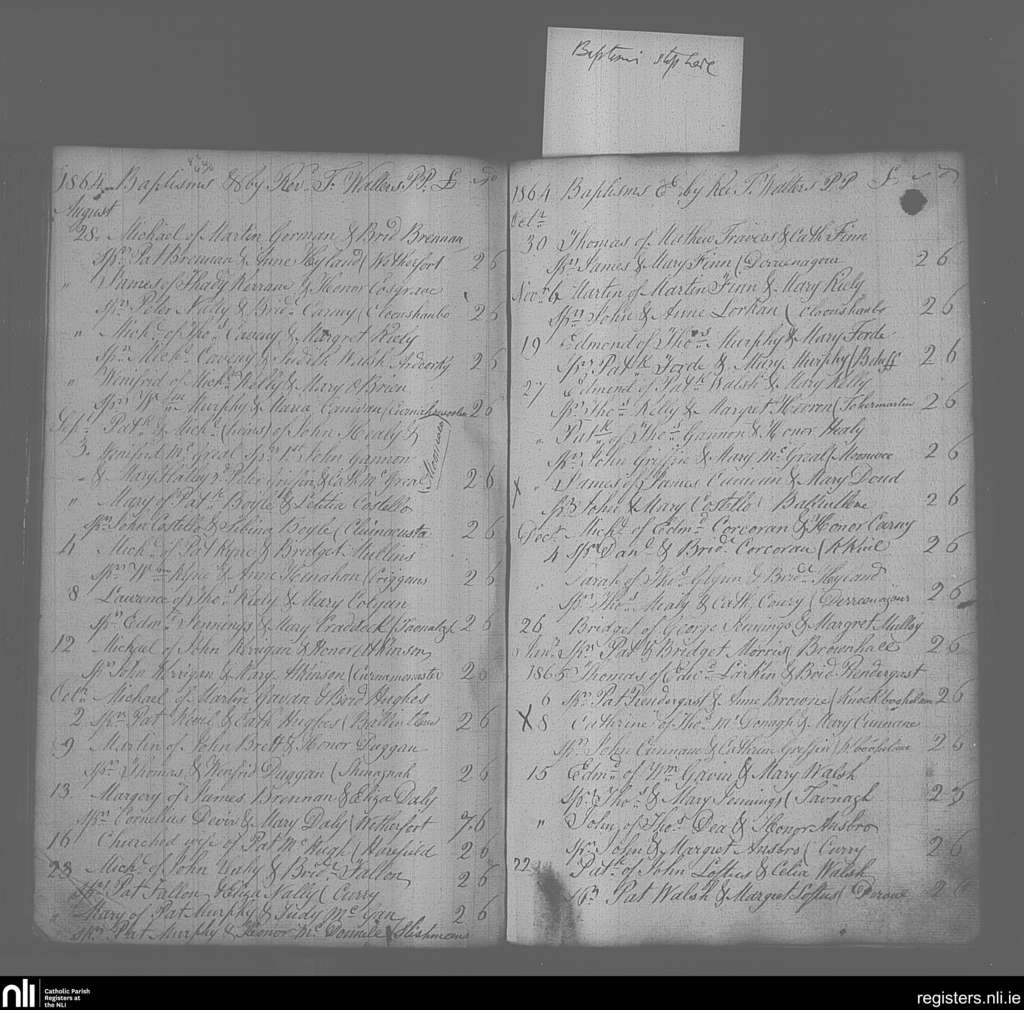 Baptisms stop here
1864 Baptisms & by Rev. T. Walters PP. £ s D
August
28. Michael of Martin Gorman & Brid Brennan
Sprs Pat Brennan & Anne Hyland (Wetherfort 2 6
" James of Thady Kerrane & Honor Cosgrave
Sprs Peter Nally & Brid. Carney (Cloonshanbo 2 6
" Michl. of Thos. Caveny & Margret Kiely
Sprs Michl. Caveny & Judith Walsh Ardcorky 2 6
" Winifrid of Michl. Kelly & Mary O'Brien
Sprs Wm Murphy & Maria Cunivan 2 6
Sepr. Patk & Michl. (twins) of John Healy &
3. Honifrid Mc Greal Sprs 1st John Gannon
& Mary Healy 2d Peter Griffin & Cath Mc Greal (Moonwee) 2 6
" Mary of Patk. Boyle & Letitia Costello
Sprs John Costello & Sibina Boyle (Cluinacusta 2 6
4 Michl. of Pat Kyne & Bridget Mullins
Sprs Wm Kyne & Anne Henahan (Criggans 2 6
8 Laurence of Thos. Kiely & Mary Colgan
Sprs Edmd. Jennings & Mary Craddock (Tavnalagh 2 6
12 Michael of John Kerrigan & Honor Atkinson
Sprs John Kerrigan & Mary Atkinson (Carnamonaster 2 6
Octr. Michael of Martin Gavan & Brid Hughes
2 Sprs Pat & Cath Hughes 2 6
9 Martin of John Brett & Honor Duggan
Sprs Thomas & Wenfrid Duggan (Shanaghah 2 6
13 Margery of James Brennan & Eliza Daly
Sprs Cornelius Devir & Mary Daly (Wetherfort 7.6
16 Churched wife of Pat Mc Hugh (Harefield 2 6
23 Michl. of John & Brid. Fallon
Sprs Pat Fallon & Eliza Nally (Curry 2 6
" Mary of Pat Murphy & Judy Mc Gan 2 6
Sprs Pat Murphy & Honor Mc Donnell (Slishmeen
1864 Baptisms &c by Rev T. Walters PP £ s D
Octr
30 Thomas of Mathew Travers & Cath Finn
Sprs James & Mary Finn (Derreenagour 2 6
Novr 6 Martin of Martin Finn & Mary Kiely
Sprs John & Anne Lorkan (Cloonshanbo 2 6
19 Edmond of Thos. Murphy & Mary Forde
Sprs Patk Forde & Mary Murphy (Baluff 2 6
27 Edmond of Patk Walsh & Mary Kelly
Sprs Thos. Kelly & Margret Heeron (Tobermartin 2 6
" Patk of Thos. Gannon & Honor Healy
Sprs John Griffin & Mary Mc Greal (Moonwee 2 6
X " James of James Cunnean & Mary Doud
Sprs John & Mary Costello 2 6
Decr. Michl. of Edmd. Corcoran & Honor Carny
4 Sprs Danl. & Brid. Corcoran 2 6
" Sarah of Thos. Glynn & Brid. Hyland
Sprs Thos. Mealy & Cath. Conry (Derreenagour 2 6
26 Bridget of George Jennings & Margret Mulloy
Janr. Sprs Pat & Bridget Morris (Brownhall 2 6
1865 Thomas of Edwd. Larkin & Brid. Prendergast
6 Sprs Pat Prendergast & Anne Browne 2 6
X 8 Catherine of Thos. Mc Donagh & Mary Cunnane
Sprs John Cunnane & Catherin Griffin 2 6
15 Edmd. of Wm Gavin & Mary Walsh
Sprs Thos. & Mary Jennings (Tavnagh 2 6
" John of Thos. Dea & Honor Ansbro
Sprs John & Margret Ansbro (Curry 2 6
22 Patk. of John Loftus & Celia Walsh
Sprs Pat Walsh & Margret Loftus 2 6
nli
Catholic Parish
Registers at
the NLI
registers.nli.ie